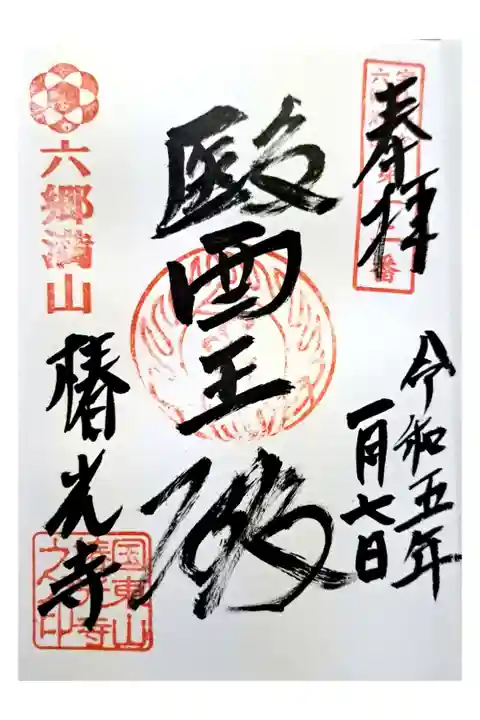 奉拝
令和五年
一月七日
醫王殿
六郷満山
椿光寺
国東山
椿光寺
之印